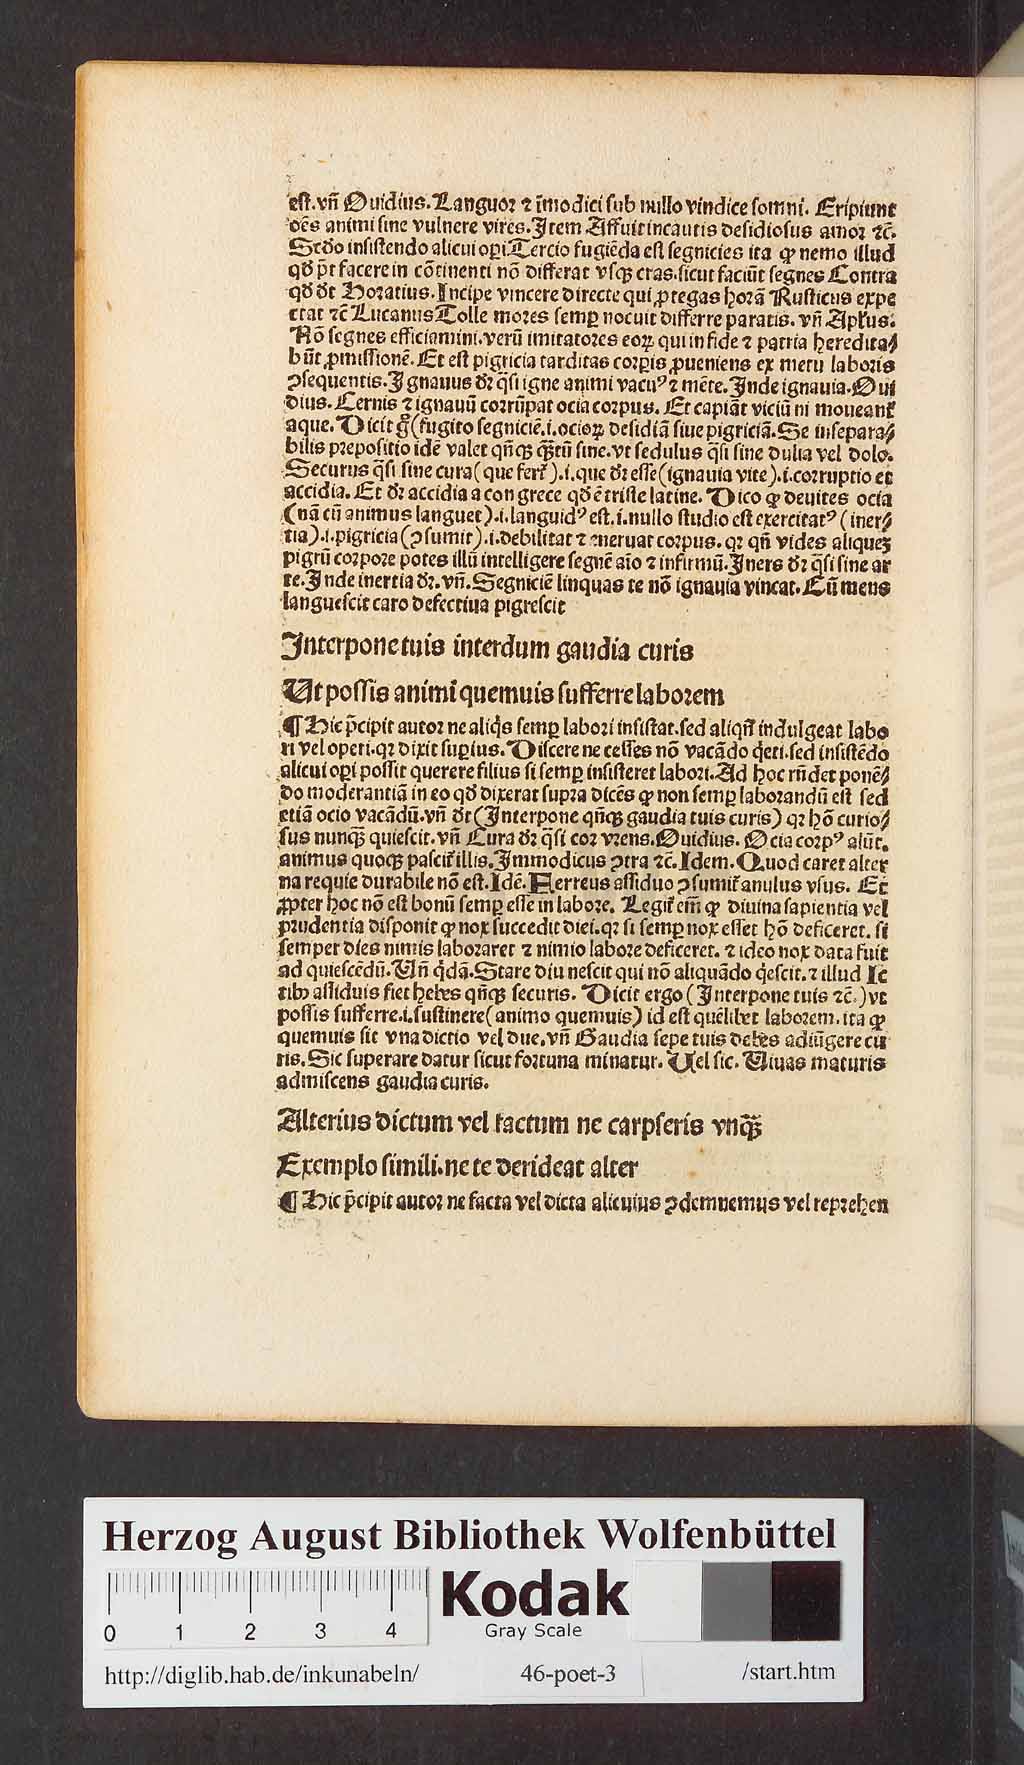 est. vn̄ Ouidius. Languor ⁊ īmodici sub nullo vindice somni. Eripiunt
oēs animi sine vulnere vires. Item Affuit incautis desidiosus amor ⁊c̄.
Scd̓o insistendo alicui oꝑi. Tercio fugiēda est segnicies ita ꝙ nemo illud
qd̓ p̄t facere in cōtinenti nō differat vsqꝫ cras. sicut faciūt segnes Contra
qd̓ d̓t Horatius. Incipe vincere directe qui ꝓtegas horā Rusticus expe
ctat ⁊c̄ Lucanus Tolle mores semꝑ nocuit differre paratis. vn̄ Apl̓us.
Nō segnes efficiamini. verū imitatores eoꝝ qui in fide ⁊ patria heredita⸗
būt ꝓmissionē. Et est pigricia tarditas corꝑis ꝓueniens ex metu laboris
ꝯsequentis. Ignauus d̓r q̄si igne animi vacuꝰ ⁊ mēte. Inde ignauia. Oui
dius. Cernis ⁊ ignauū corrūpat ocia corpus. Et capiāt viciū ni moueant̄
aque. Dicit g̊ (fugito segniciē .i. ocioꝝ desidiā siue pigriciā. Se insepara⸗
bilis prepositio idē valet qn̄qꝫ q̄ꝫtū sine. vt sedulus q̄si sine dulia vel dolo.
Securus q̄si sine cura (que fert̄) .i. que d̓r esse (ignauia vite) .i. corruptio et
accidia. Et d̓r accidia a con grece qd̓ ē triste latine. Dico ꝙ deuites ocia
(nā cū animus languet) .i. languidꝰ est. i. nullo studio est exercitatꝰ (iner⸗
tia) .i. pigricia (ꝯsumit) .i. debilitat ⁊ eneruat corpus. qꝛ qn̄ vides aliquez
pigrū corpore potes illū intelligere segnē aīo ⁊ infirmū. Iners d̓r q̄si sine ar
te. Inde inertia d̓r. vn̄. Segniciē linquas te nō ignauia vincat. Cū mens
languescit caro defectiua pigrescit
Interpone tuis interdum gaudia curis
Ut possis animi quemuis sufferre laborem
¶ Hic p̄cipit autor ne aliq̇s semꝑ labori insistat. sed aliqn̄ indulgeat labo
ri vel operi. qꝛ dixit suꝑius. Discere ne cesses nō vacādo q̇eti. sed insistēdo
alicui oꝑi possit querere filius si semꝑ insisteret labori. Ad hoc rn̄det ponē⸗
do moderantiā in eo qd̓ dixerat supra dicēs ꝙ non semꝑ laborandū est sed
etiā ocio vacādū. vn̄ d̓t (Interpone qn̄qꝫ gaudia tuis curis) qꝛ hō curio⸗
sus nunqꝫ̄ quiescit. vn̄ Cura d̓r q̄si cor vrens. Ouidius. Ocia corpꝰ alūt.
animus quoqꝫ pascit̄ illis. Immodicus ꝯtra ⁊c̄. Idem. Quod caret alter
na requie durabile nō est. Idē. Ferreus assiduo ꝯsumit̄ anulus vsus. Et
ꝓpter hoc nō est bonū semꝑ esse in labore. Legit̄ em̄ ꝙ diuina sapientia vel
prudentia disponit ꝙ nox succedit diei. qꝛ si semꝑ nox esset hō deficeret. si
semper dies nimis laboraret ⁊ nimio labore deficeret. ⁊ ideo nox data fuit
ad quiescēdū. Vn̄ q̇dā. Stare diu nescit qui nō aliquādo q̇escit. ⁊ illud Ic
tibꝫ assiduis fiet hebes qn̄qꝫ securis. Dicit ergo (Interpone tuis ⁊c̄.) vt
possis sufferre .i. sustinere (animo quemuis) id est quēlibet laborem. ita ꝙ
quemuis sit vna dictio vel due. vn̄ Gaudia sepe tuis debes adiūgere cu
ris. Sic superare datur sicut fortuna minatur. Vel sic. Viuas maturis
admiscens gaudia curis.
Alterius dictum vel factum ne carpseris vnqꝫ̄
Exemplo simili. ne te derideat alter
¶ Hic p̄cipit autor ne facta vel dicta alicuius ꝯdemnemus vel reprehen
Herzog August Bibliothek Wolfenbüttel
0 1 2 3 4
Kodak
Gray Scale
http://diglib.hab.de/inkunabeln/ 46-poet-3 /start.htm